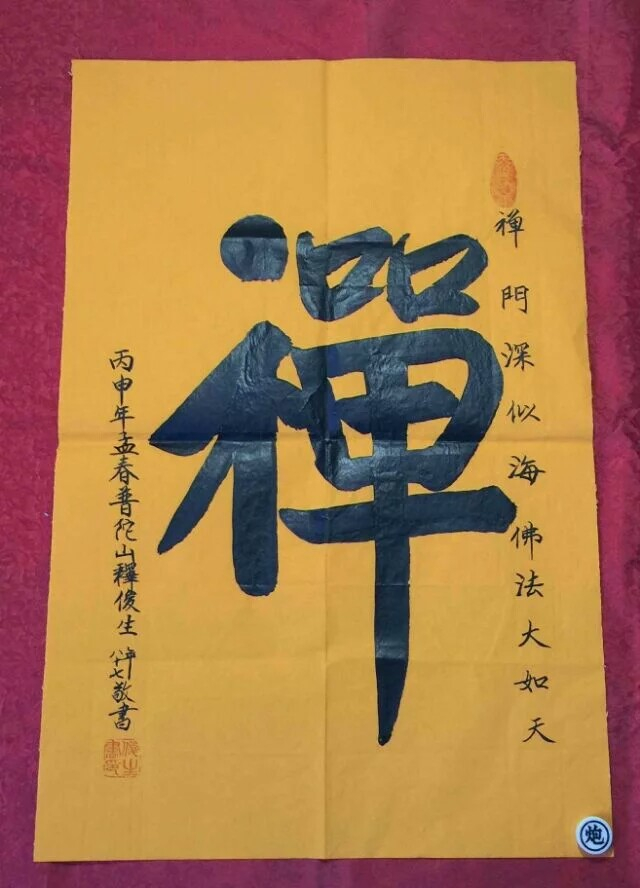 禅門深似海佛法大如天
禪
丙申年孟春普陀山釋俊生年八十七敬書
炮